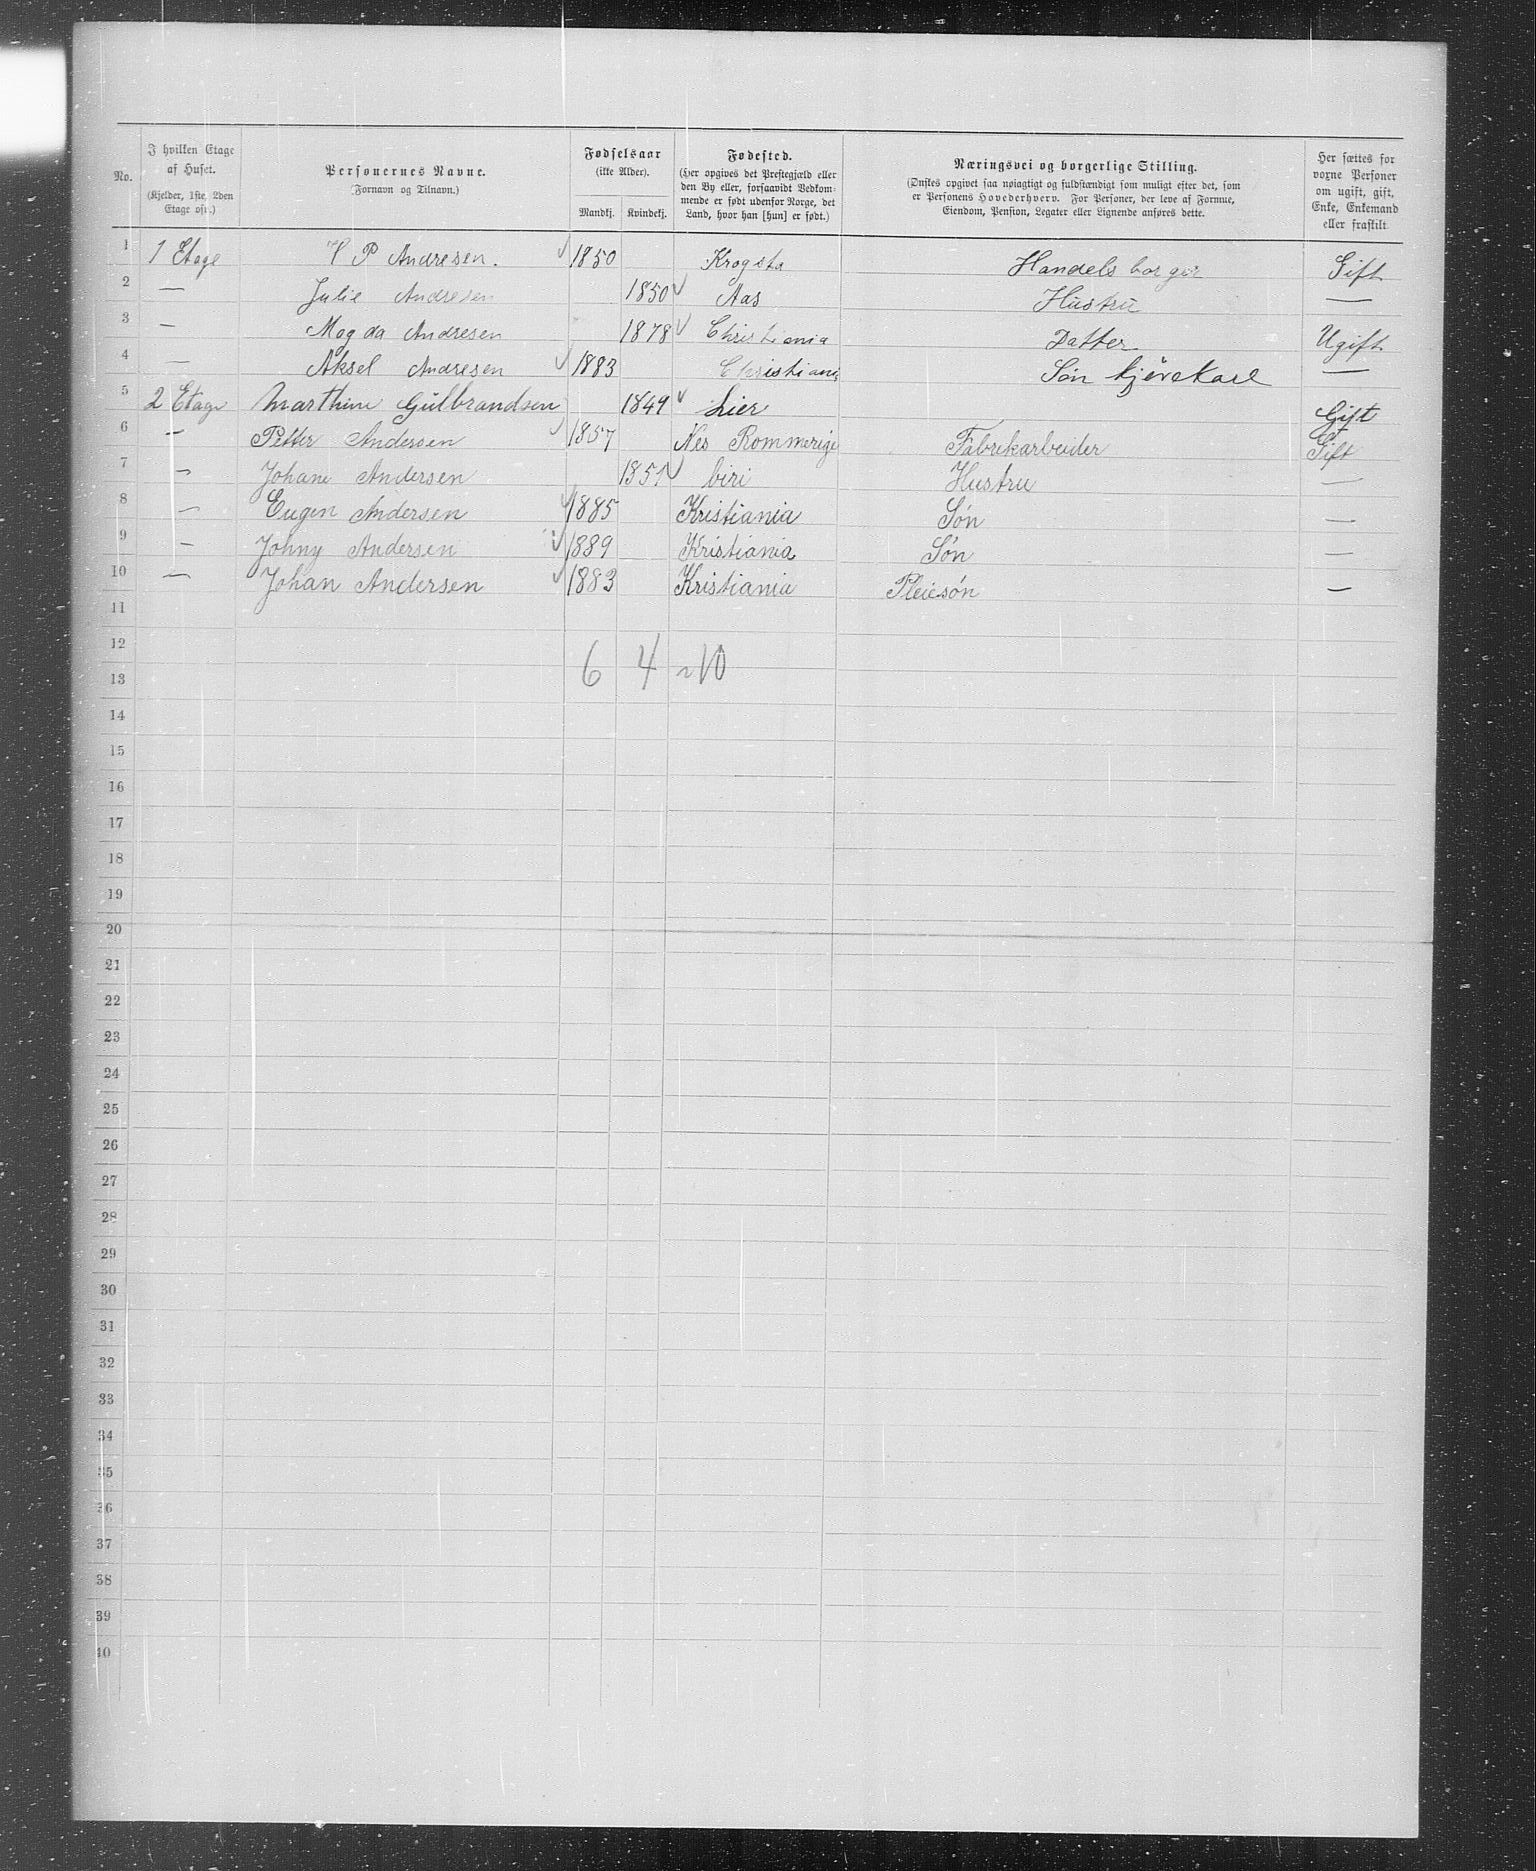 No. I hvilken Etage af Huset. (Kjelder, 1ste, 2den Etage osv.) Personernes Navne. (Fornavn og Tilnavn.) Fødselsaar (ikke Alder). Mandkj. Kvindekj. Fødested. (Her opgives det Prestegjæld eller den By eller, forsaavidt Vedkommende er født udenfor Norge, det Land, hvor han [hun] er født.) Næringsvei og borgerlige Stilling. (Ønskes opgivet saa nøiagtigt og fuldstændigt som muligt efter det, som er Personens Hovederhverv. For Personer, der leve af Formue, Eiendom, Pension, Legater eller Lignende anføres dette. Her sættes for voxne Personer om ugift, gift, Enke, Enkemand eller fraskilt
1 1 Etage P Andresen. 1850 Krogsta Handels borger Gift
2 — Julie Andresen 1850 Aas Hustru —
3 — Magda Andresen 1878 Christiania Datter Ugift
4 — Aksel Andresen 1883 Christiania Søn kjørekarl —
5 2 Etage Marthine Gulbrandsen 1849 Lier Gift
6 — Petter Andersen 1857 Nes Rommerige Fabrikarbeider Gift
7 — Johane Andersen 1851 biri Hustru —
8 — Eugen Andersen 1885 Kristiania Søn —
9 — Johny Andersen 1889 Kristiania Søn —
10 — Johan Andersen 1883 Kristiania Pleiesøn —
11
12
6 4 ~ 10
13
14
15
16
17
18
19
20
21
22
23
24
25
26
27
28
29
30
31
32
33
34
35
36
37
38
39
40